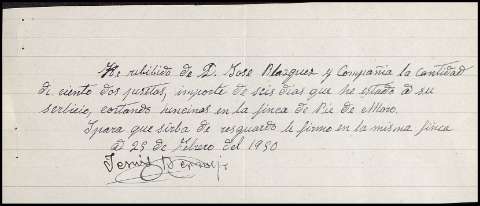 He rebibido de D. Jose Blazquez y Compañia la cantidad
de ciento dos pesetas, importe de seis dias que he estado a su
serbicio, cortando hencinas en la finca de Pie de Moro.
I para que sirba de resguardo le firmo en la misma finca
a 25 de Febrero del 1930
Jesus